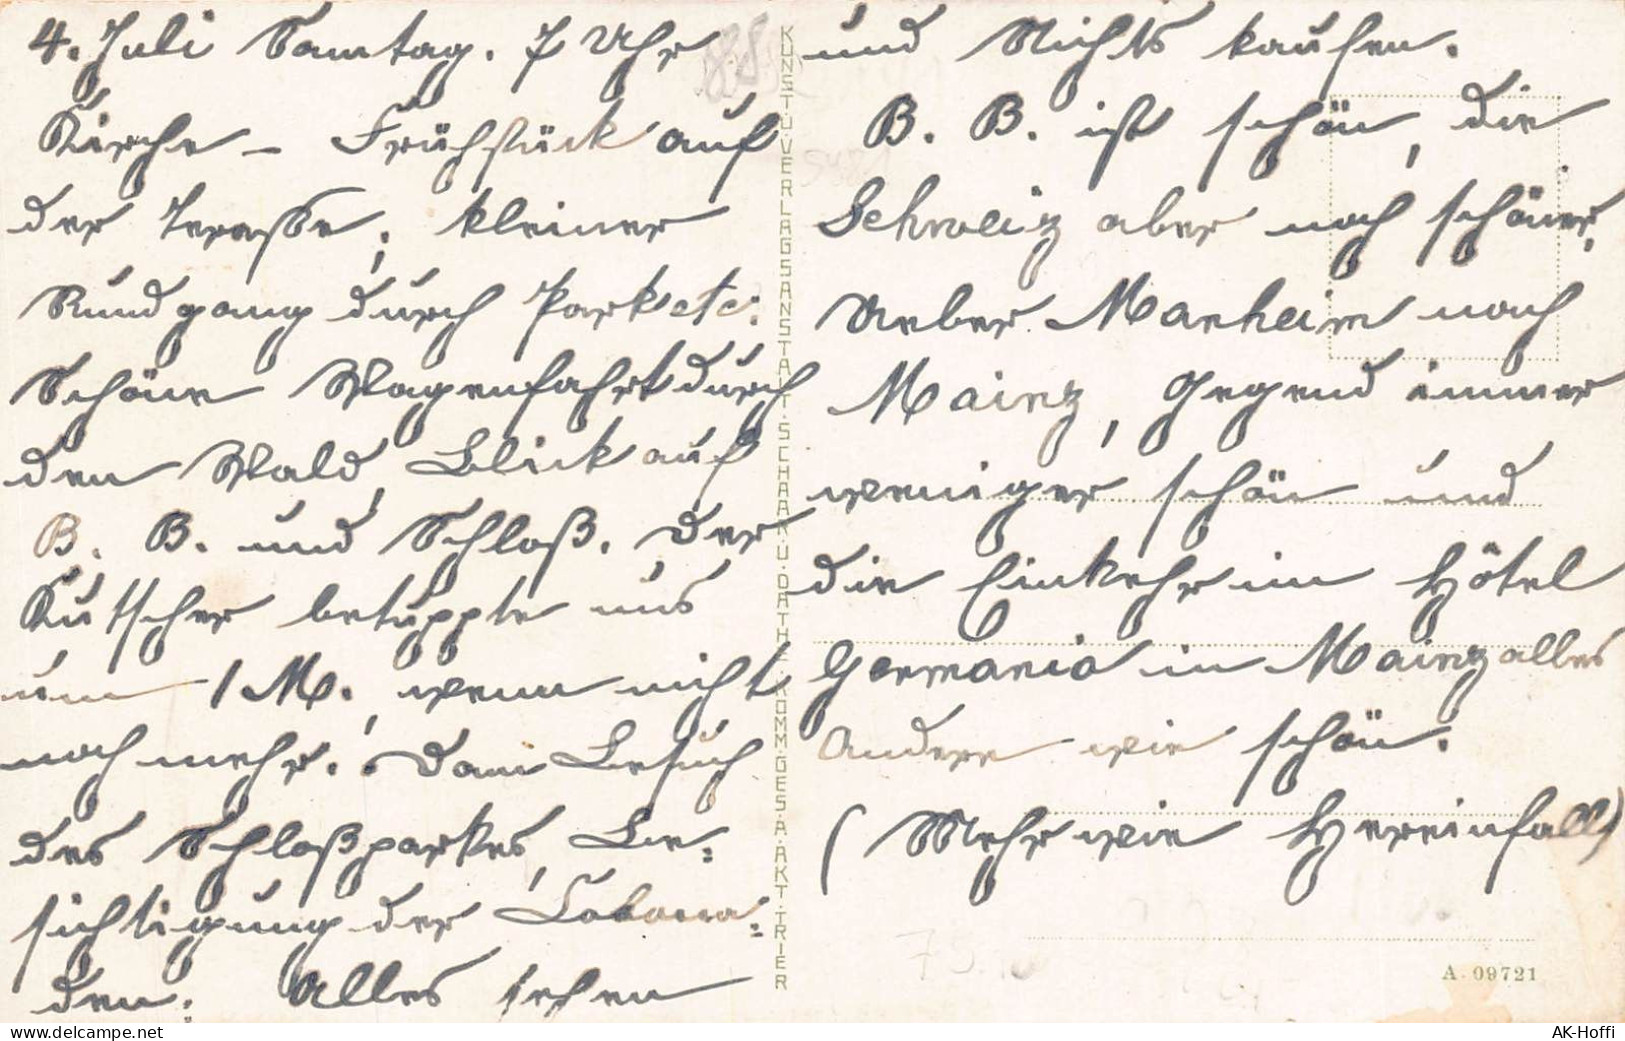 4. Juli Samtag. 7 Uhr
Kirche – Frühstück auf
der Terasse, kleiner
Rundgang durch Park etc.
Schöne Wagenfahrt durch
den Wald, Blick auf
B. B. und Schloß. Der
Kutscher betuppte uns
um 1 M., wenn nicht
noch mehr. Dann Besuch
des Schloßparkes, Be=
sichtigung der
den: Alles sehen
und Nichts kaufen.
B. B. ist schön, die
Schweiz aber noch schöner.
Ueber Manheim nach
Mainz, Gegend immer
weniger schön und
die Einkehr im Hôtel
Germania in Mainz alles
Andere wie schön.
(Mehr wie Hereinfall)
KUNST U. VERLAGSANSTALT · SCHAAR U. DATHE KOMM. GES. A. AKT. TRIER
A. 09721
AK-Hoffi
www.delcampe.net